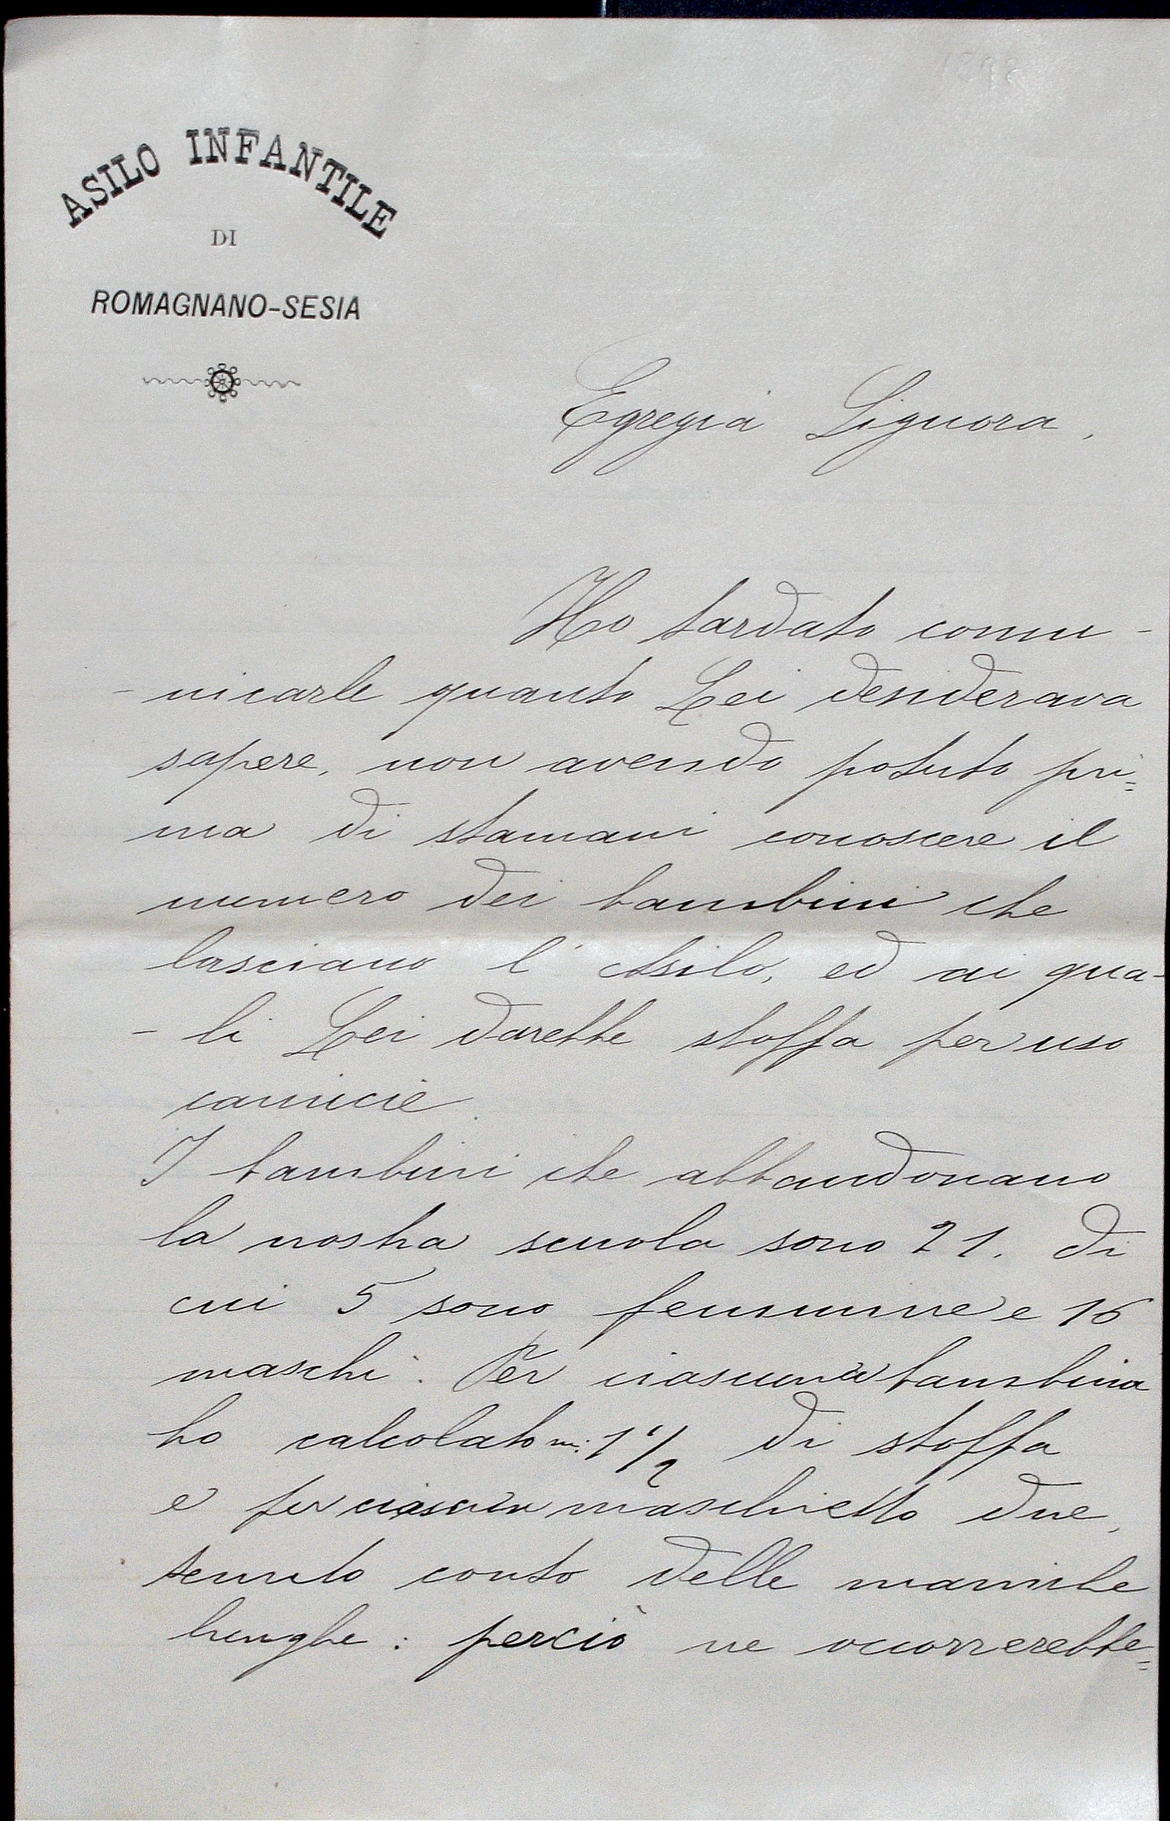 ASILO INFANTILE
DI
ROMAGNANO-SESIA
Egregia Signora,
Ho tardato comu-
-nicarle quanto Lei desiderava
sapere, non avendo potuto pri=
ma di stamani conoscere il
numero dei bambini che
lasciano l'Asilo, ed ai qua-
-li Lei darebbe stoffa per uso
camicie.
I bambini che abbandonano
la nostra scuola sono 21. di
cui 5 sono femmine e 16
maschi. Per ciascuna bambina
ho calcolato m: 1 1/2 di stoffa
e per ciascun maschietto due,
tenuto conto delle maniche
lunghe: perciò ne occorrerebbe=